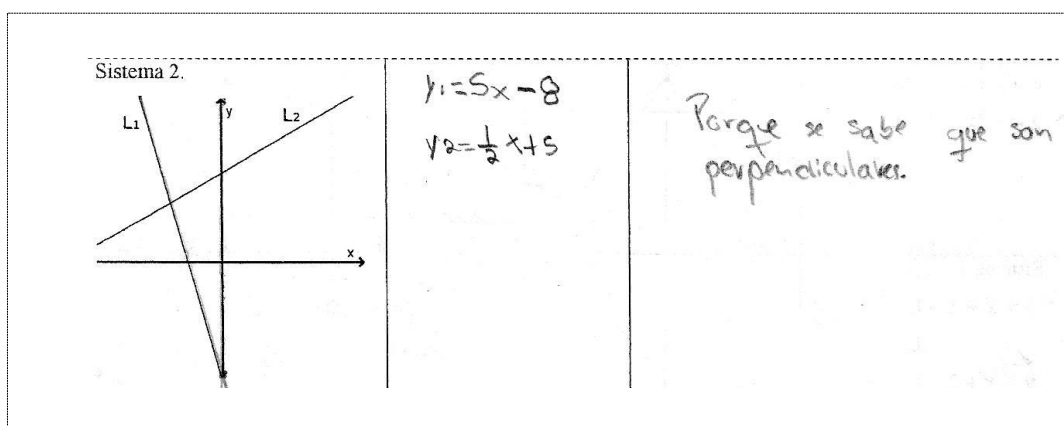 Sistema 2.
L1
y
L2
x
y1=5x-8
y2=1/2x+5
Porque se sabe que son
perpendiculares.